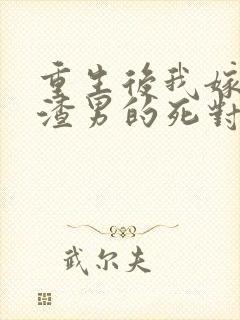 重生後我嫁
渣男的死對
武尔夫